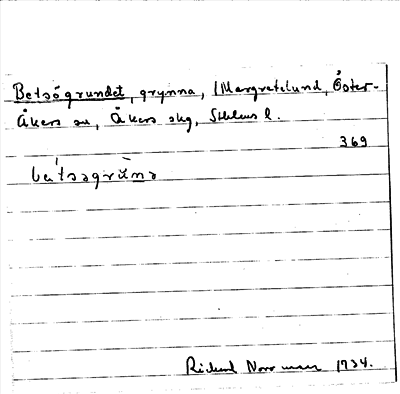 Betsögrundet, grynna, (Margretelund, Öster-
Åkers sn, Åkers skg, Sthlms l.
369
be'tsøgrùnə
Rickard Norrman 1934.